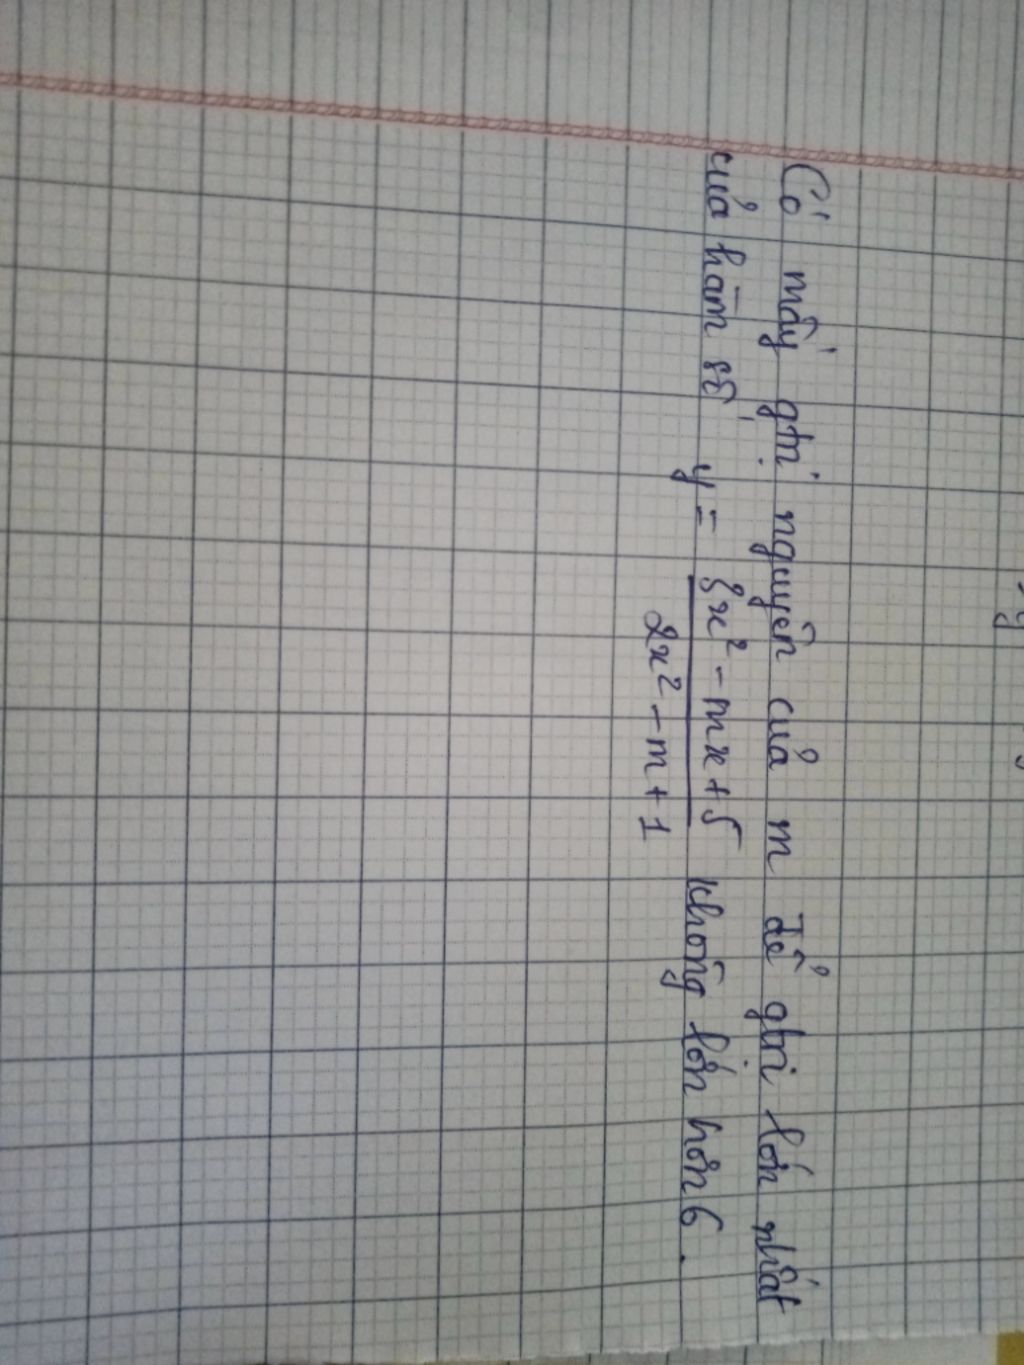 Có mấy gtrị nguyên của m để gtrị lớn nhất
của hàm số y = \frac{3x² - mx + 5}{2x² - m + 1} không lớn hơn 6.